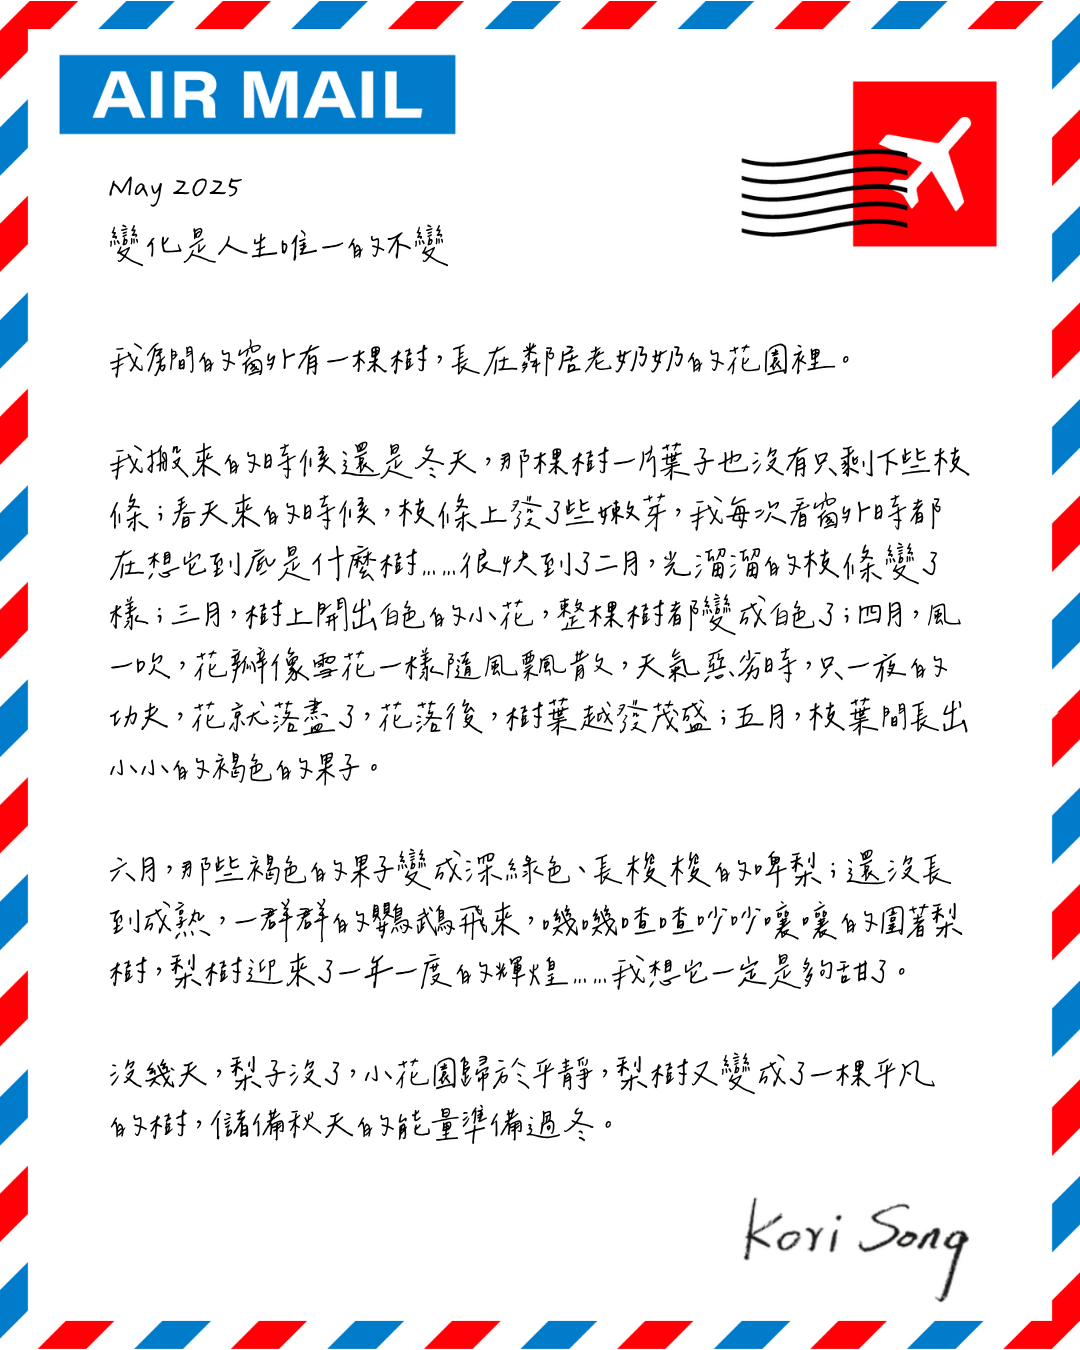 AIR MAIL
May 2025
變化是人生唯一的不變
我房間的窗外有一棵樹，長在鄰居老奶奶的花園裡。
我搬來的時候還是冬天，那棵樹一片葉子也沒有只剩下些枝
條；春天來的時候，枝條上發了些嫩芽，我每次看窗外時都
在想它到底是什麼樹……很快到了二月，光溜溜的枝條變了
樣；三月，樹上開出白色的小花，整棵樹都變成白色了；四月，風
一吹，花瓣像雪花一樣隨風飄散，天氣惡劣時，只一夜的
功夫，花就落盡了，花落後，樹葉越發茂盛；五月，枝葉間長出
小小的褐色的果子。
六月，那些褐色的果子變成深綠色、長梭梭的啤梨；還沒長
到成熟，一群群的鸚鵡飛來，嘰嘰喳喳吵吵嚷嚷的圍著梨
樹，梨樹迎來了一年一度的輝煌……我想它一定是夠甜了。
沒幾天，梨子沒了，小花園歸於平靜，梨樹又變成了一棵平凡
的樹，儲備秋天的能量準備過冬。
Kori Song